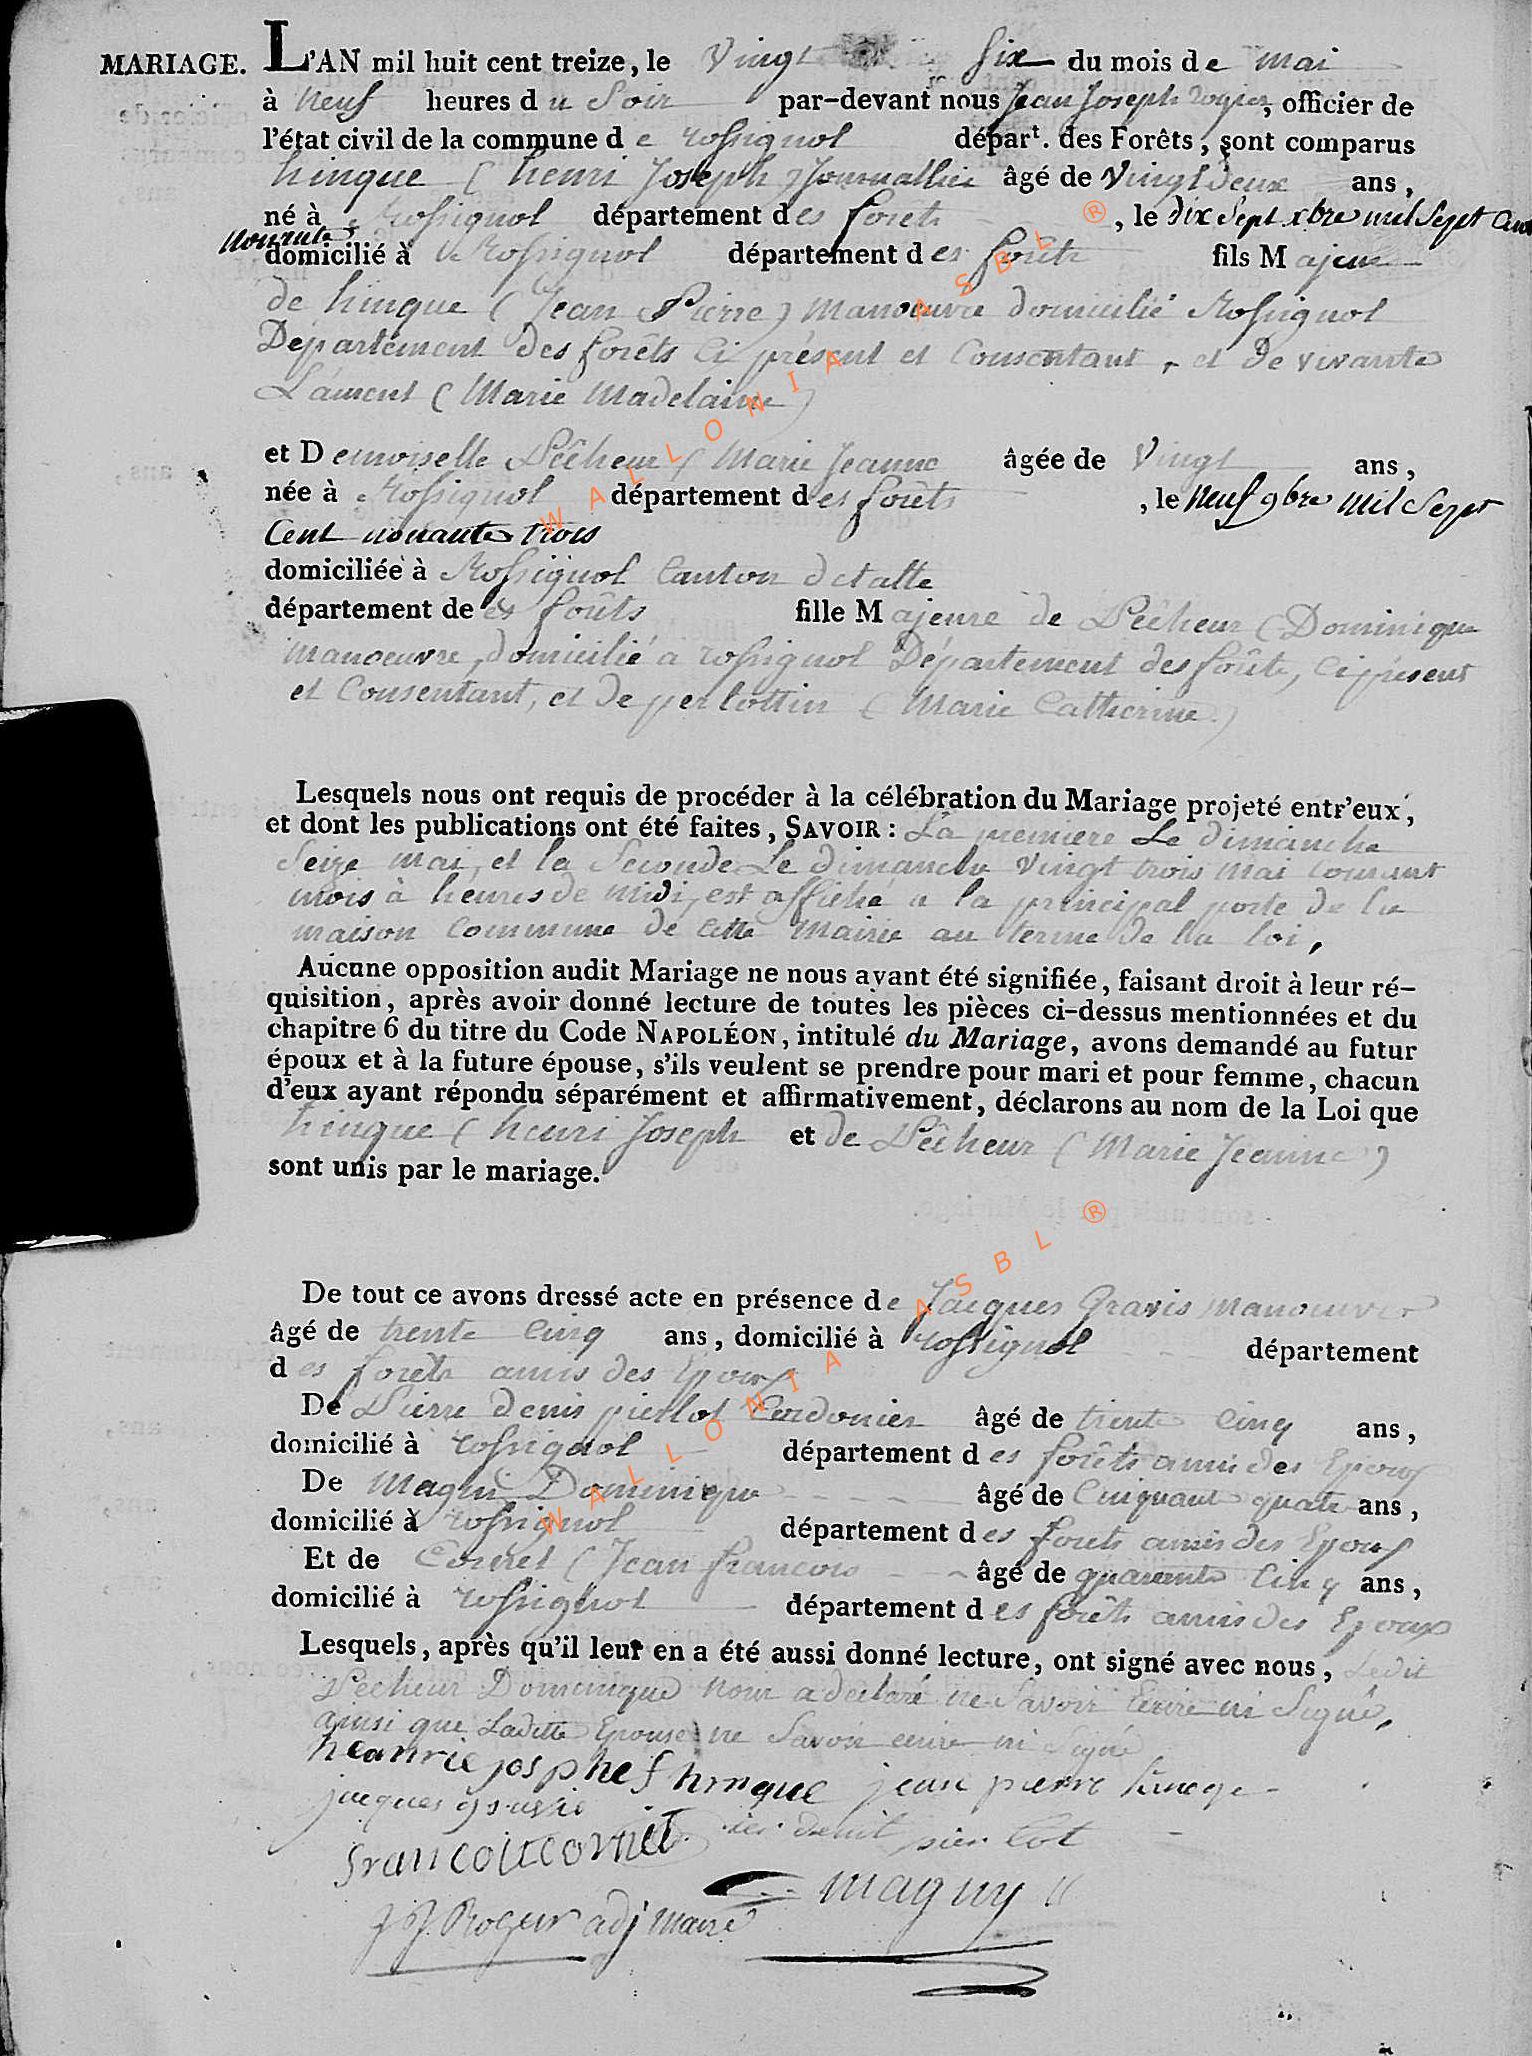 MARIAGE. L'AN mil huit cent treize, le Vingt Six du mois de mai
à neuf heures du Soir par-devant nous Jean Joseph rogier, officier de
l'état civil de la commune de rossignol dépar^t. des Forêts, sont comparus
hinque (henri Joseph) Journallier âgé de Vingt deux ans,
né à Rossignol département des forets, le dix Sept xbre mil Sept Cent
nonante
domicilié à Rossignol département des forêts fils Majeur
de hinque (Jean Pierre) manoeuvre domicilié Rossignol
Département des forêts Ci présent et Consentant, et de vivante
Lament (Marie Madelaine)
et Demoiselle Pêcheur (Marie Jeanne âgée de Vingt ans,
née à Rossignol département des forêts, le Neuf 9bre mil Sept
Cent nonante trois
domiciliée à Rossignol Canton detalle
département de es forêts fille Majeure de Pêcheur (Dominique
manoeuvre, domicilié a rossignol Département des forêts, Ci présent
et Consentant, et de perlottin (Marie Catherine)
Lesquels nous ont requis de procéder à la célébration du Mariage projeté entr'eux,
et dont les publications ont été faites, SAVOIR : La premiere Le dimanche
Seize mai, et la Seconde Le dimanche Vingt trois mai courant
mois à heures de midi, est affiché a la principal porte de la
maison Commune de Cette Mairie au terme de la loi,
Aucune opposition audit Mariage ne nous ayant été signifiée, faisant droit à leur ré-
quisition, après avoir donné lecture de toutes les pièces ci-dessus mentionnées et du
chapitre 6 du titre du Code NAPOLÉON, intitulé du Mariage, avons demandé au futur
époux et à la future épouse, s'ils veulent se prendre pour mari et pour femme, chacun
d'eux ayant répondu séparément et affirmativement, déclarons au nom de la Loi que
hinque (henri Joseph et de Pêcheur (Marie Jeanne)
sont unis par le mariage.
De tout ce avons dressé acte en présence de Jacques Gravis manouvre
âgé de trente Cinq ans, domicilié à rossignol département
des forêts amis des Epoux
De Pierre denis pierlot Cordonier âgé de trente Cinq ans,
domicilié à rossignol département des forêts amis des Epoux
De Magni Dominique âgé de Cinquant quatre ans,
domicilié à rossignol département des forêts amis des Epoux
Et de Cornet (Jean francois âgé de quarante Cinq ans,
domicilié à rossignol département des forêts amis des Epoux
Lesquels, après qu'il leur en a été aussi donné lecture, ont signé avec nous, Ledit
Pecheur Dominique nous a declaré ne Savoir Ecrire ni Signé,
ainsi que Laditte Epouse ne Savoir ecrire ni Signé
heanrie josphef hinque jean pierre hinque
jacques gravis
denis pierlot
francois cornet
magny
J J Rogier adj maire
WALLONIA ASBL ®
WALLONIA ASBL ®